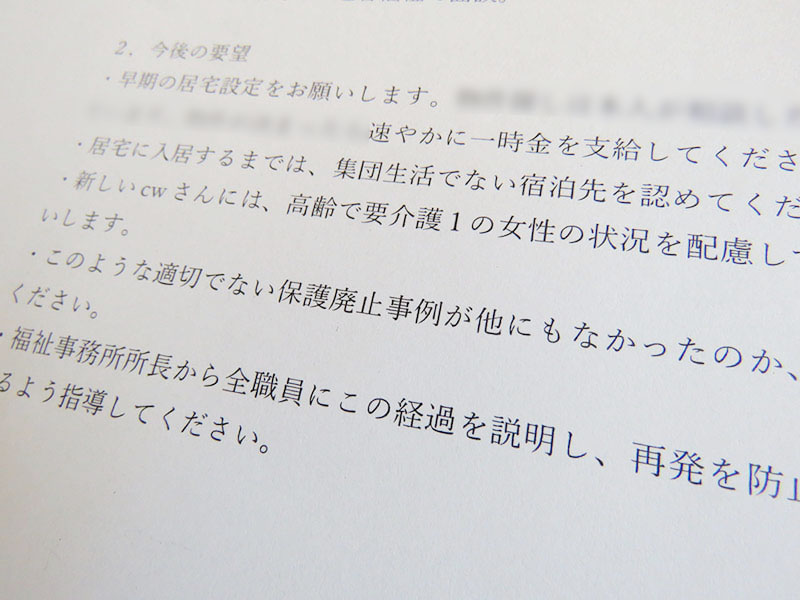 2．今後の要望
・早期の居宅設定をお願いします。
速やかに一時金を支給してくださ
・居宅に入居するまでは、集団生活でない宿泊先を認めてくだ
・新しいcwさんには、高齢で要介護1の女性の状況を配慮し
いします。
・このような適切でない保護廃止事例が他にもなかったのか、
ください。
・福祉事務所所長から全職員にこの経過を説明し、再発を防止
るよう指導してください。